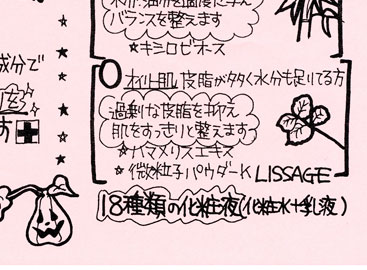 バランスを整えます
☆キシロビオース
成分で
オイリー肌 皮脂が多く水分も足りてる方
過剰な皮脂を抑え
肌をすっきりと整えます
☆ハマメリスエキス
☆微粒子パウダーK LISSAGE
18種類の化粧液(化粧水+乳液)